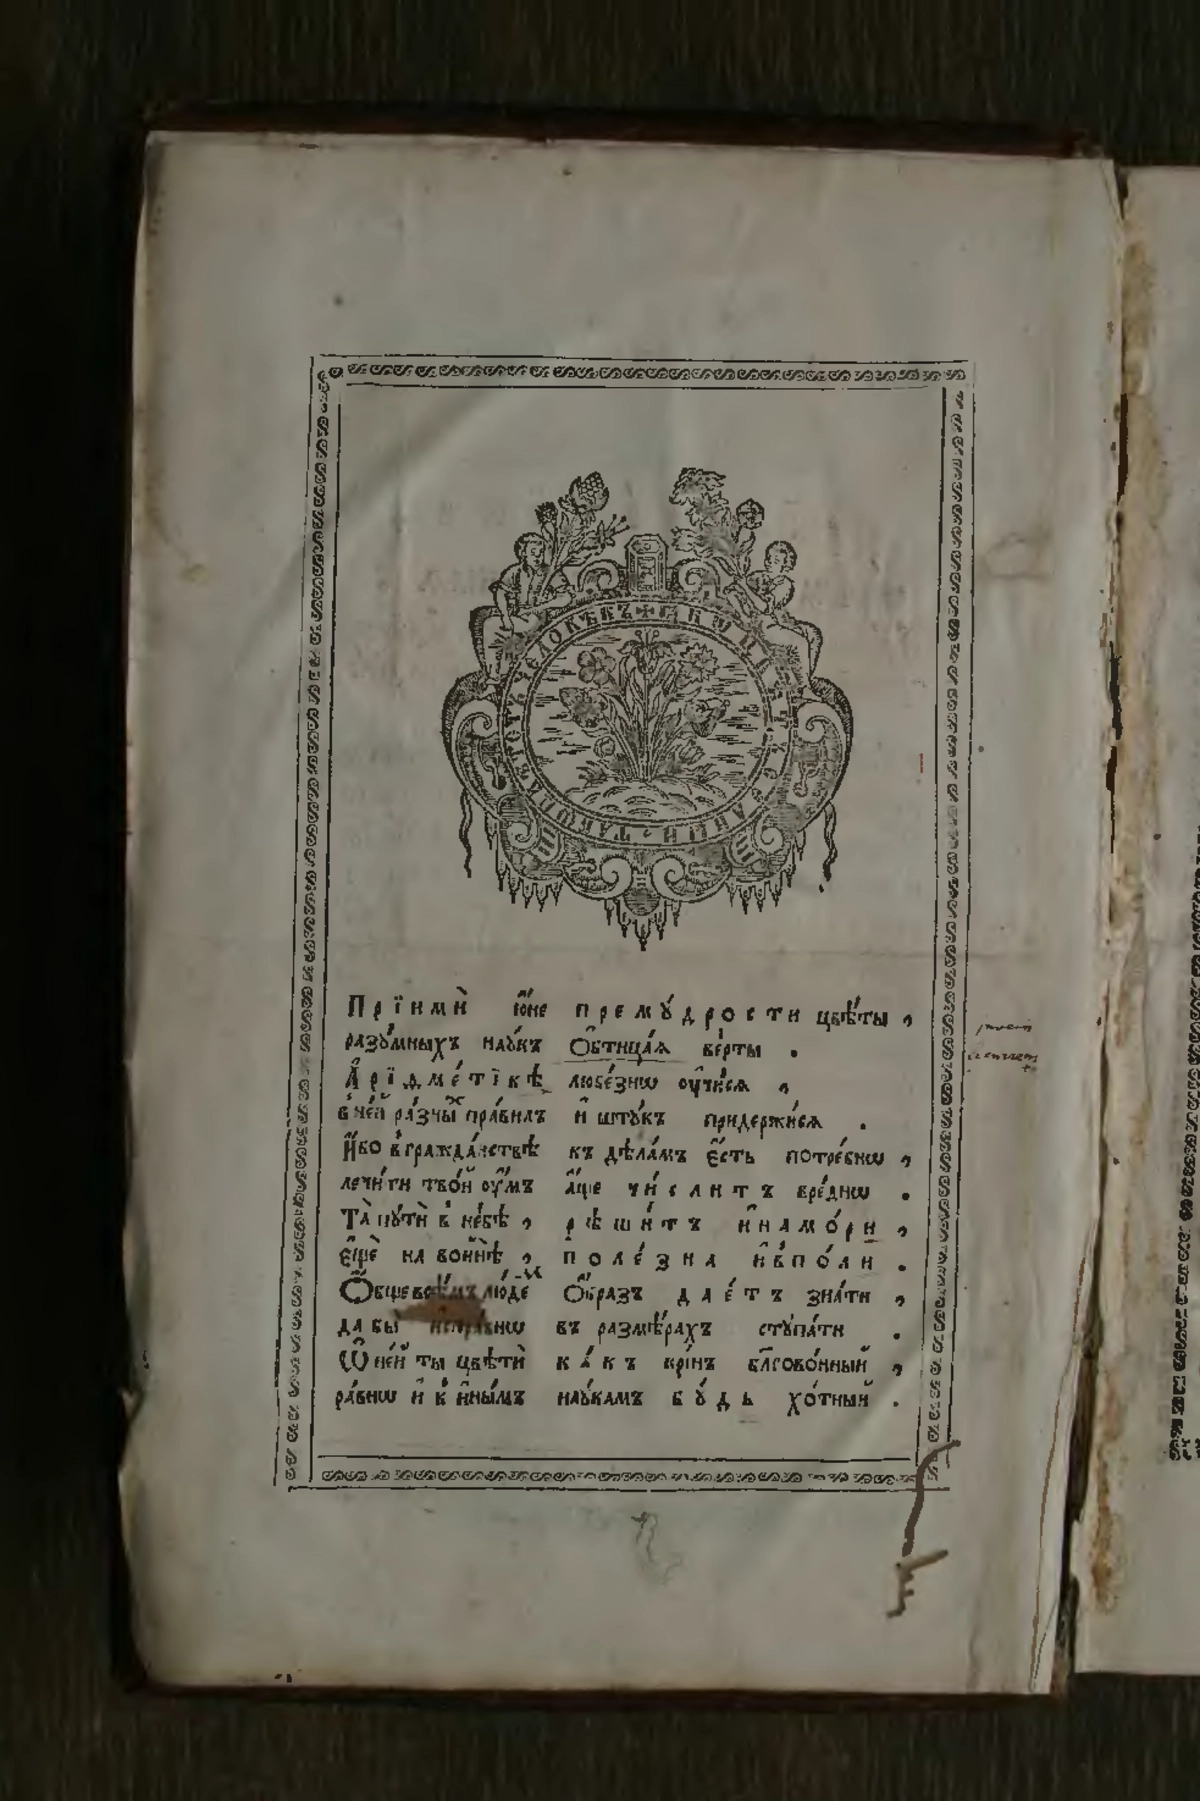 Прїимѝ ю҆́не премꙋ́дрости цвѣ́ты ,
разꙋ́мныхъ наꙋкъ ѻ҆бтица́ѧ ве́рты .
А҆рїдме́тїкѣ любе́знѡ ᲂу҆чи́сѧ ,
в̾не́й ра́зныⷯ пра́вилъ и҆ штꙋ́къ придержи́сѧ .
И҆́бо в̾гражда́нствѣ къ дѣла́мъ є҆́сть потре́бнѡ ,
лечи́ти тво́й ᲂу҆́мъ а҆́ще чи́слитъ вре́днѡ .
Та̀ пꙋтѝ в̾ не́бѣ , рѣши́тъ и҆ на мо́ри ,
є҆щѐ на войнѣ̀ , поле́зна и҆ в̾ по́ли .
Ѻ҆́бще всѣ̑мъ лю́деⷨ ѻ҆́бразъ дае́тъ зна́ти ,
да бы̀ въ размѣ́рахъ стꙋпа́ти .
Ѿ не́й ты цвѣтѝ ка́къ крі́нъ бл҃гово́нный ,
ра́внѡ и҆ к̾ и҆ны́мъ наꙋкамъ бꙋ́дь хо́тный .